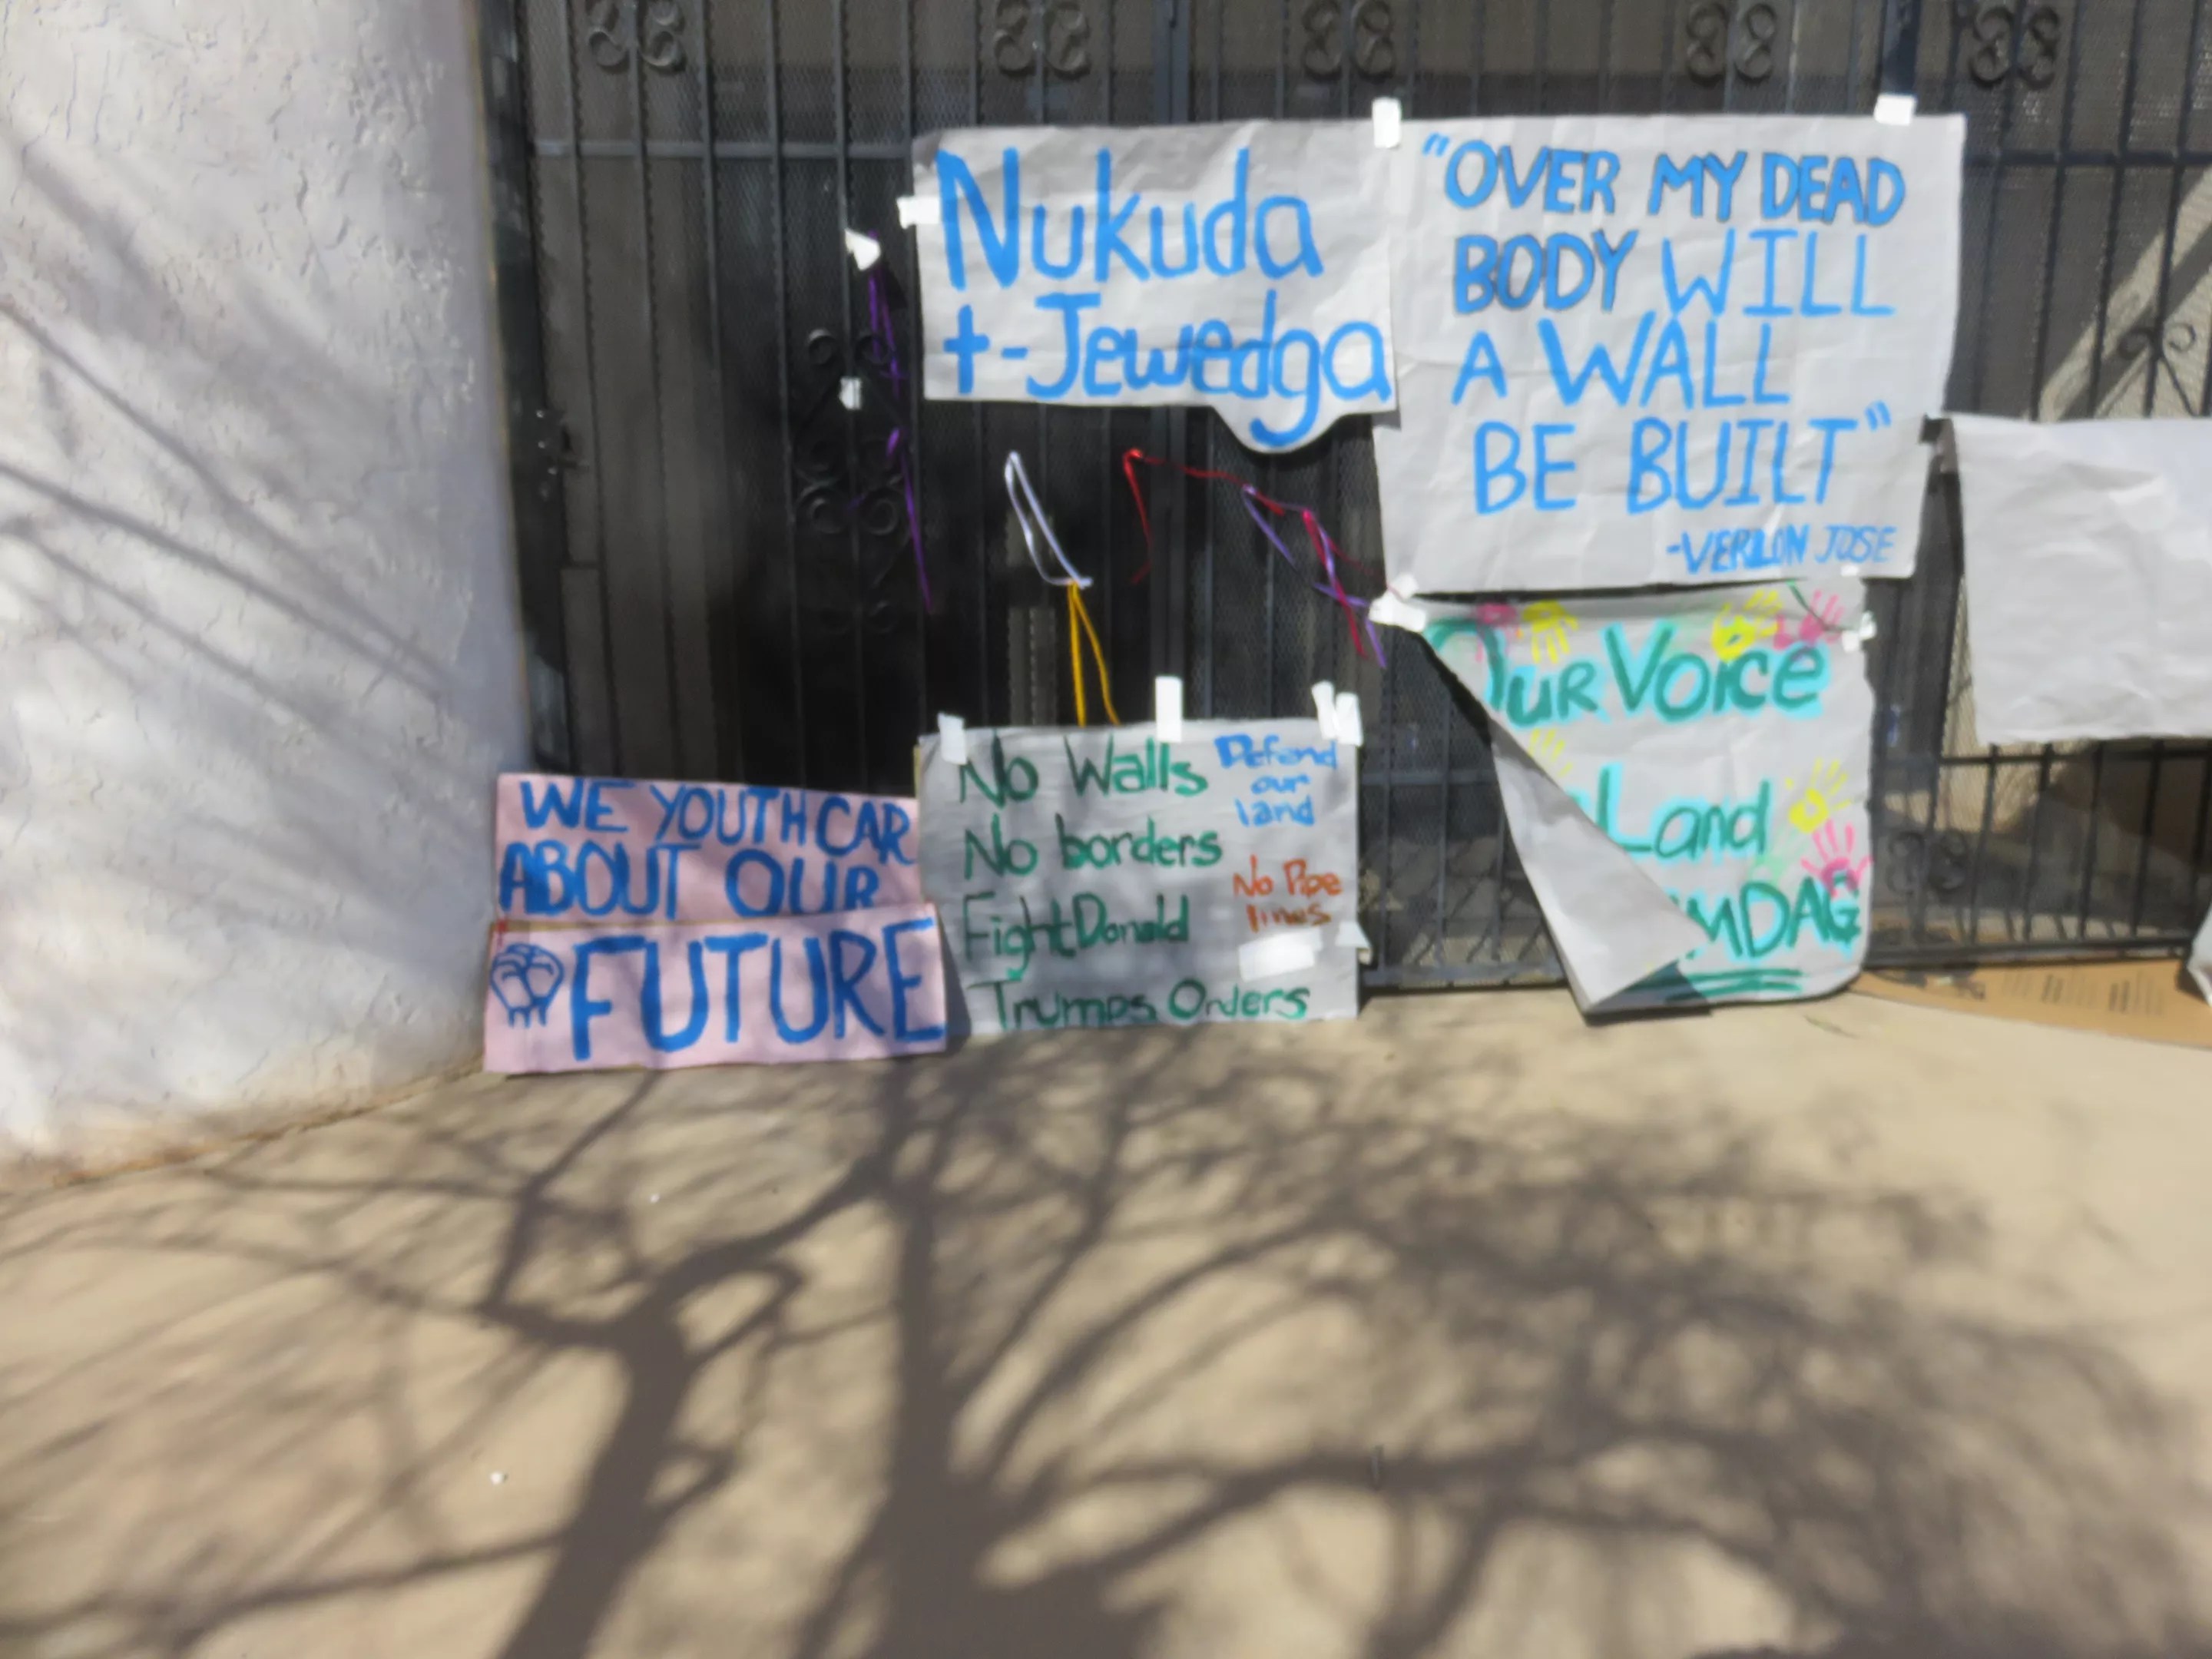 Nukuda
t-Jewedga
"OVER MY DEAD
BODY WILL
A WALL
BE BUILT"
-VERLON JOSE
WE YOUTH CAR
ABOUT OUR
FUTURE
No Walls
No borders
Fight Donald
Trumps Orders
Defend
our
land
No Pipe
lines
Our Voice
Land
MDAG